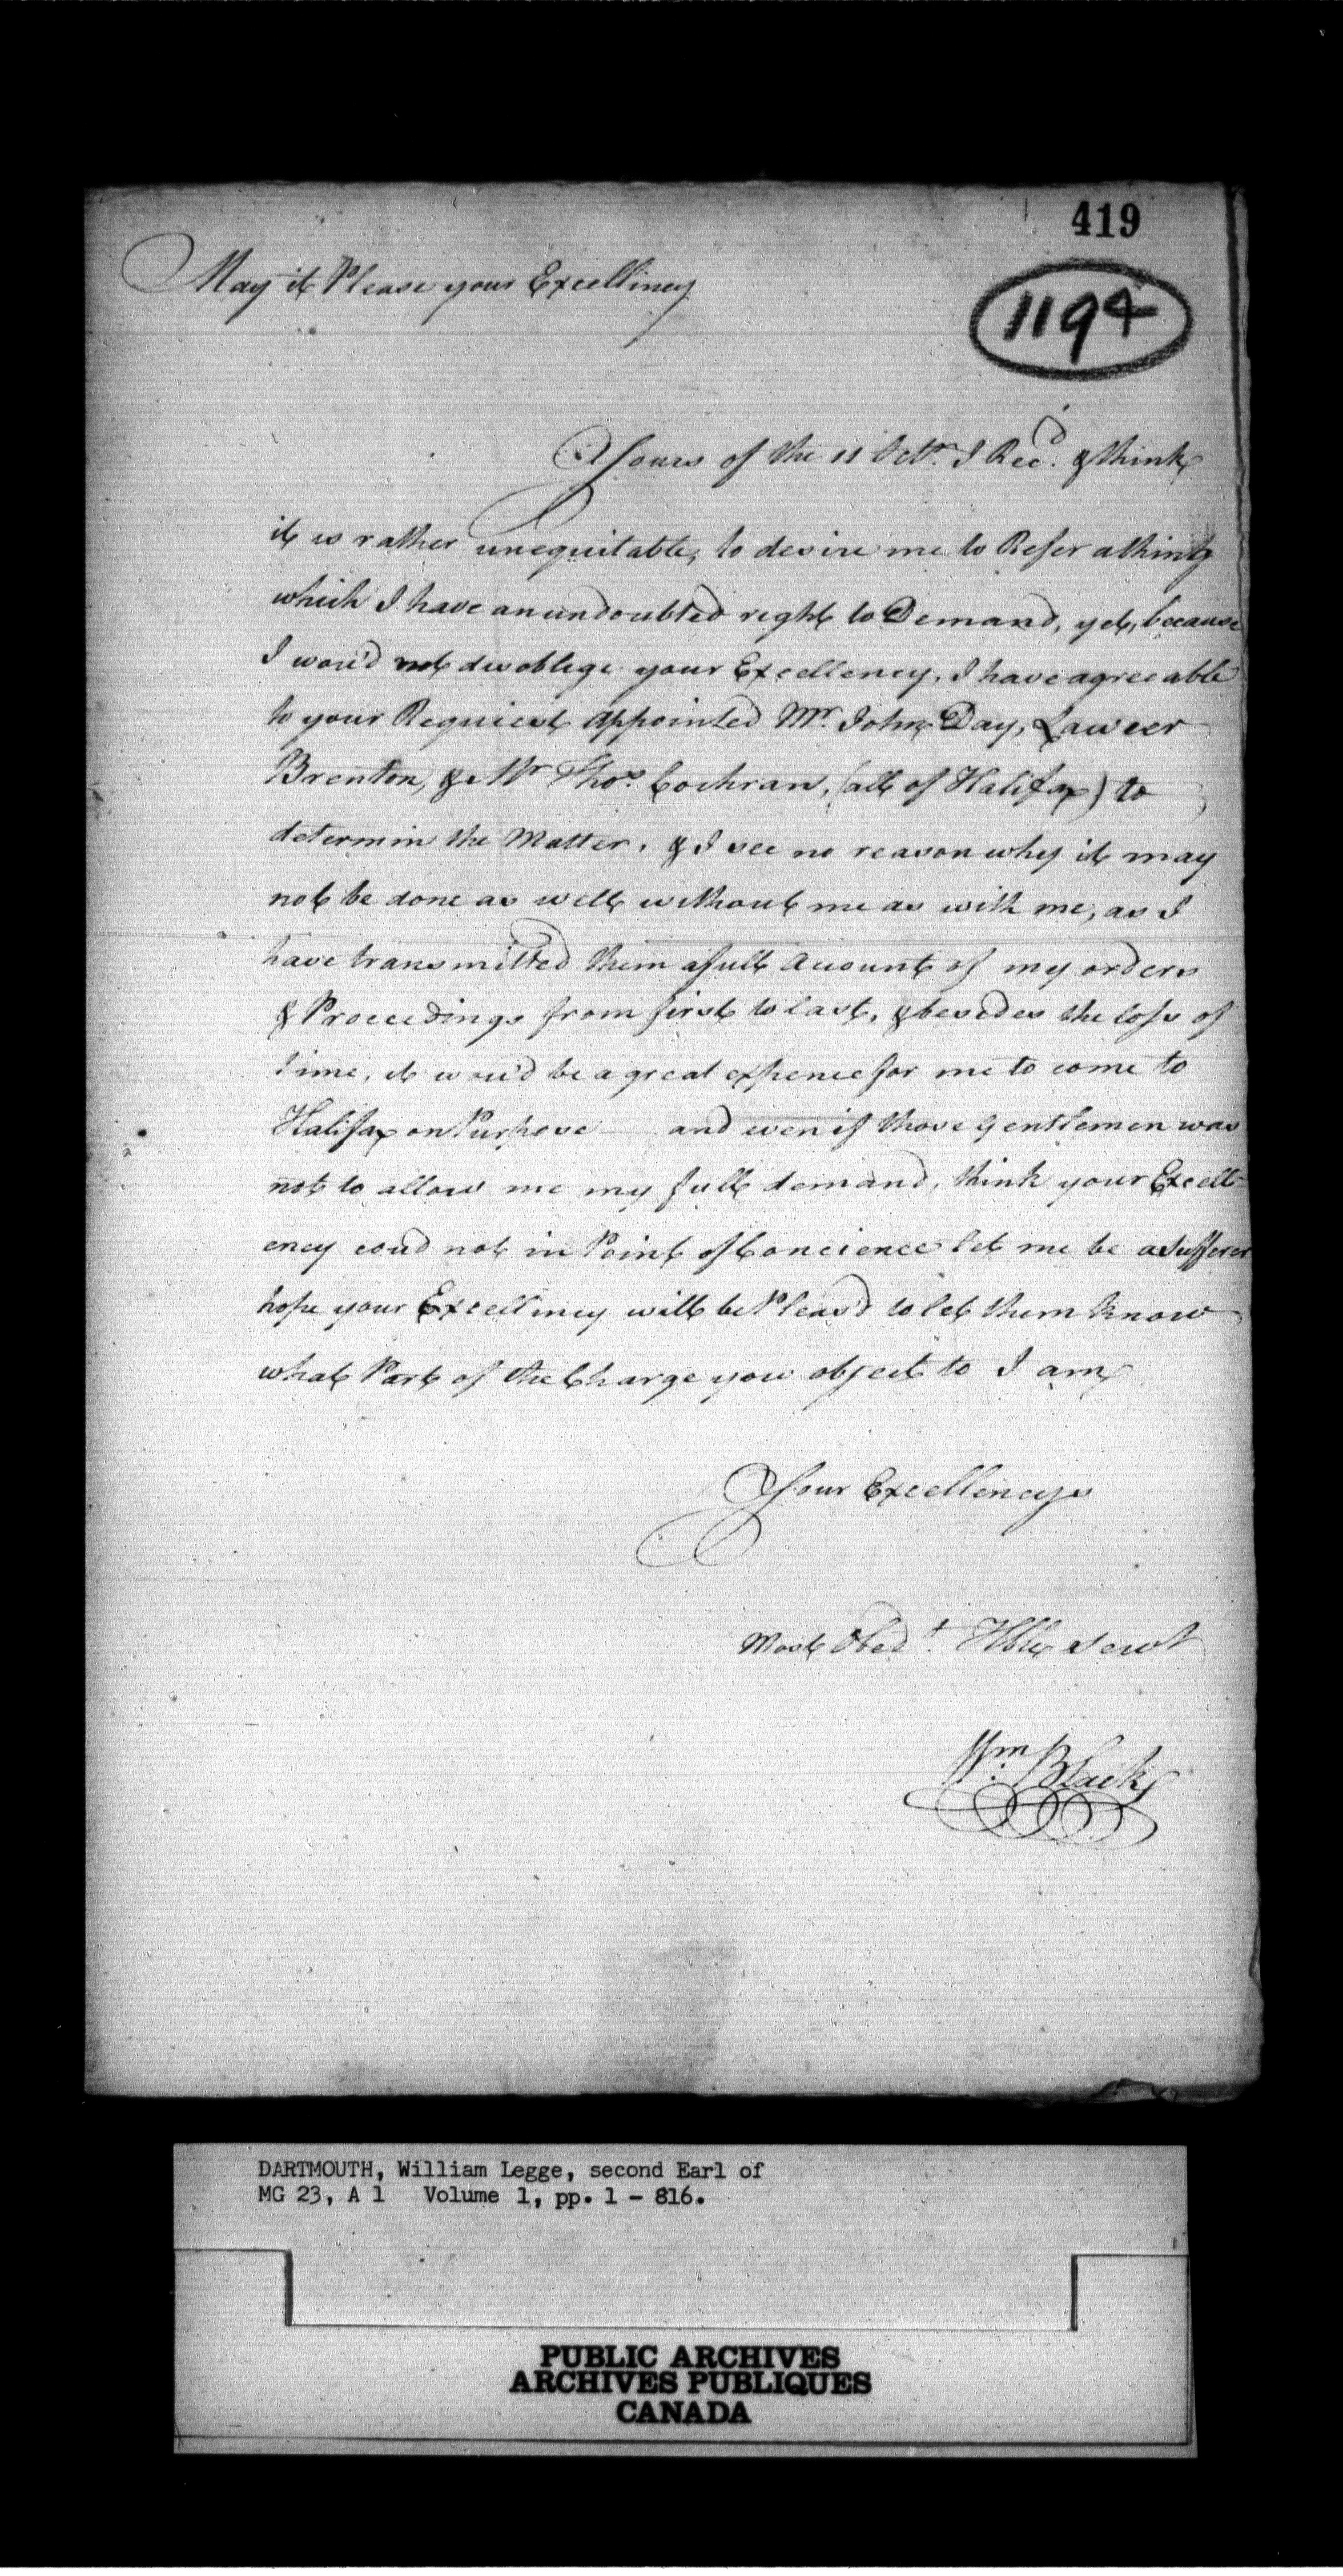 419
1194
May it Please your Excellincy
Yours of the 11 Octr. I Recd. & think
it is rather unequitable, to desire me to Refer a thing
which I have an undoubted right to Demand, yet, because
I wou'd not disoblige your Excellency, I have agreeable
to your Requiest appointed Mr. John Day, Laweer
Brenton, & Mr Thos. Cochran, (all of Halifax) to
determin the Matter, & I see no reason why it may
not be done as well without me as with me, as I
have transmitted them a full account of my orders
& Proceedings from first to last, & besides the loss of
Time, it wou'd be a great expence for me to come to
Halifax on Purpose — and even if those gentlemen was
not to allow me my full demand, think your Excell-
ency coud not in Point of Concience let me be a sufferer
hope your Excellincy will be Pleas'd to let them know
what Part of the Charge you object to I am
Your Excellencys
Most Obedt. Hble servt
Wm. Black
DARTMOUTH, William Legge, second Earl of
MG 23, A 1 Volume 1, pp. 1 - 816.
PUBLIC ARCHIVES
ARCHIVES PUBLIQUES
CANADA